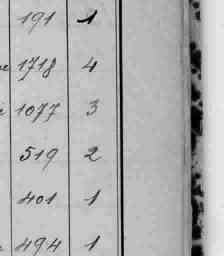 191 1
1718 4
1077 3
519 2
401 1
494 1